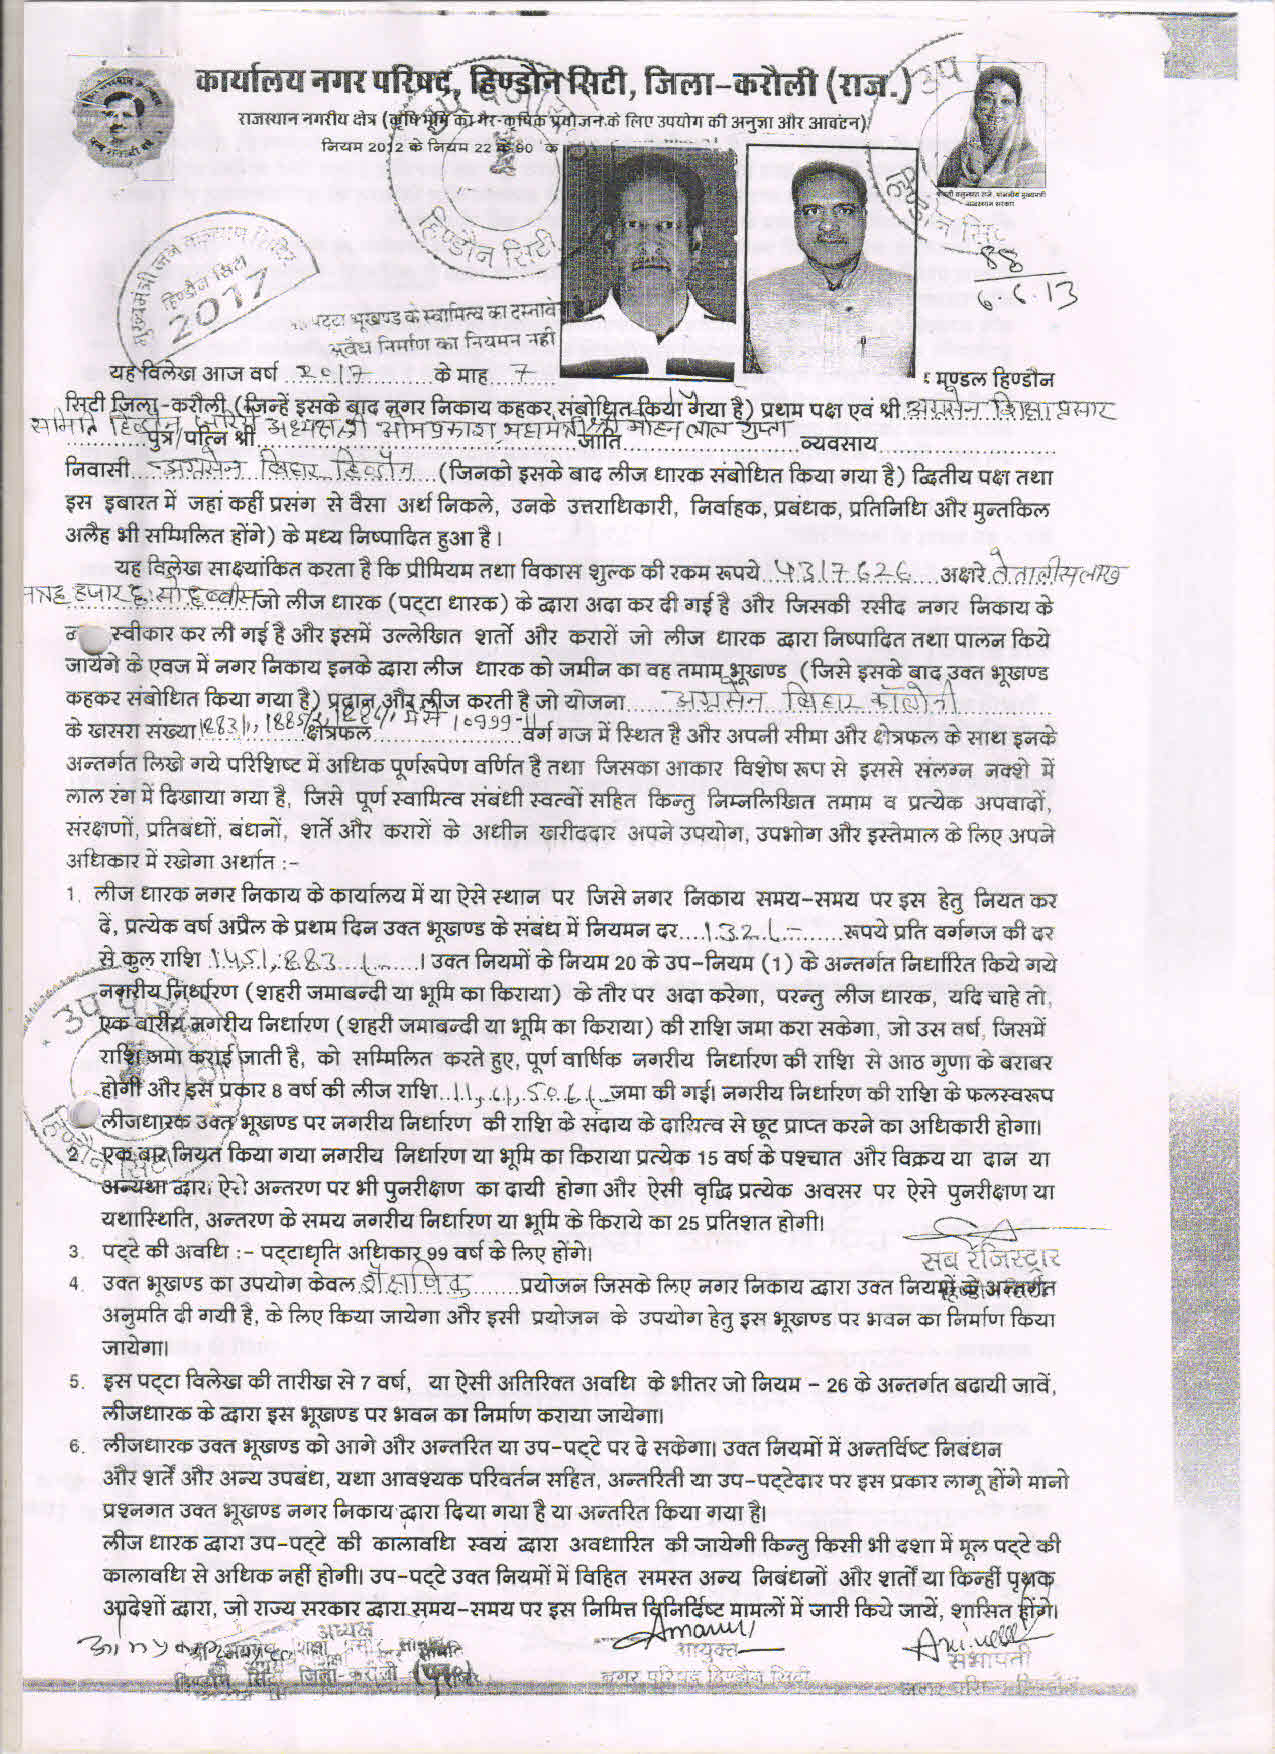 कार्यालय नगर परिषद, हिण्डौन सिटी, जिला-करौली (राज.)
राजस्थान नगरीय क्षेत्र (कृषि भूमि का गैर-कृषिक प्रयोजन के लिए उपयोग की अनुज्ञा और आवंटन)
नियम 2012 के नियम 22 के
उप
हिण्डौन सिटी
हिण्डौन सिटी
हिण्डौन सिटी
2017
88
6.6.13
पट्टा भूखण्ड के स्वामित्व का दस्तावे
अवैध निर्माण का नियमन नही
यह विलेख आज वर्ष 2017 के माह 7 मण्डल हिण्डौन
सिटी जिला-करौली (जिन्हें इसके बाद नगर निकाय कहकर संबोधित किया गया है) प्रथम पक्ष एवं श्री अग्रसेन शिक्षा प्रसार
समिति हिण्डौन जरिये अध्यक्ष श्री ओमप्रकाश, महामंत्री श्री मोहन लाल गुप्ता
पुत्र/पत्नि श्री जाति व्यवसाय
निवासी अग्रसेन विहार हिण्डौन (जिनको इसके बाद लीज धारक संबोधित किया गया है) द्वितीय पक्ष तथा
इस इबारत में जहां कहीं प्रसंग से वैसा अर्थ निकले, उनके उत्तराधिकारी, निर्वाहक, प्रबंधक, प्रतिनिधि और मुन्तकिल
अलैह भी सम्मिलित होंगे) के मध्य निष्पादित हुआ है।
यह विलेख साक्ष्यांकित करता है कि प्रीमियम तथा विकास शुल्क की रकम रूपये 4317626 अक्षरे तेतालीसलाख
सत्रह हजार छः सो छब्बीस जो लीज धारक (पट्टा धारक) के द्वारा अदा कर दी गई है और जिसकी रसीद नगर निकाय के
स्वीकार कर ली गई है और इसमें उल्लेखित शर्तो और करारों जो लीज धारक द्वारा निष्पादित तथा पालन किये
जायेंगे के एवज में नगर निकाय इनके द्वारा लीज धारक को जमीन का वह तमाम भूखण्ड (जिसे इसके बाद उक्त भूखण्ड
कहकर संबोधित किया गया है) प्रदान और लीज करती है जो योजना अग्रसेन विहार कॉलोनी
के खासरा संख्या क्षेत्रफल वर्ग गज में स्थित है और अपनी सीमा और क्षेत्रफल के साथ इनके
अन्तर्गत लिखे गये परिशिष्ट में अधिक पूर्णरूपेण वर्णित है तथा जिसका आकार विशेष रूप से इससे संलग्न नक्शे में
लाल रंग में दिखाया गया है, जिसे पूर्ण स्वामित्व संबंधी स्वत्वों सहित किन्तु निम्नलिखित तमाम व प्रत्येक अपवादों,
संरक्षणों, प्रतिबंधों, बंधनों, शर्ते और करारों के अधीन खरीददार अपने उपयोग, उपभोग और इस्तेमाल के लिए अपने
अधिकार में रखेगा अर्थात :-
1. लीज धारक नगर निकाय के कार्यालय में या ऐसे स्थान पर जिसे नगर निकाय समय-समय पर इस हेतु नियत कर
दें, प्रत्येक वर्ष अप्रैल के प्रथम दिन उक्त भूखण्ड के संबंध में नियमन दर 132/- रूपये प्रति वर्गगज की दर
से कुल राशि 1451883/- । उक्त नियमों के नियम 20 के उप-नियम (1) के अन्तर्गत निर्धारित किये गये
नगरीय निर्धारण (शहरी जमाबन्दी या भूमि का किराया) के तौर पर अदा करेगा, परन्तु लीज धारक, यदि चाहे तो,
एक बारीय नगरीय निर्धारण (शहरी जमाबन्दी या भूमि का किराया) की राशि जमा करा सकेगा, जो उस वर्ष, जिसमें
राशि जमा कराई जाती है, को सम्मिलित करते हुए, पूर्ण वार्षिक नगरीय निर्धारण की राशि से आठ गुणा के बराबर
होगी और इस प्रकार 8 वर्ष की लीज राशि जमा की गई। नगरीय निर्धारण की राशि के फलस्वरूप
लीजधारक उक्त भूखण्ड पर नगरीय निर्धारण की राशि के सदाय के दायित्व से छूट प्राप्त करने का अधिकारी होगा।
2. एक बार नियत किया गया नगरीय निर्धारण या भूमि का किराया प्रत्येक 15 वर्ष के पश्चात और विक्रय या दान या
अन्यथा द्वारा ऐसे अन्तरण पर भी पुनरीक्षण का दायी होगा और ऐसी वृद्धि प्रत्येक अवसर पर ऐसे पुनरीक्षण या
यथास्थिति, अन्तरण के समय नगरीय निर्धारण या भूमि के किराये का 25 प्रतिशत होगी।
3. पट्टे की अवधि :- पट्टाधृति अधिकार 99 वर्ष के लिए होंगे।
सब रजिस्ट्रार
4. उक्त भूखण्ड का उपयोग केवल शैक्षणिक प्रयोजन जिसके लिए नगर निकाय द्वारा उक्त नियमों के अन्तर्गत
अनुमति दी गयी है, के लिए किया जायेगा और इसी प्रयोजन के उपयोग हेतु इस भूखण्ड पर भवन का निर्माण किया
जायेगा।
5. इस पट्टा विलेख की तारीख से 7 वर्ष, या ऐसी अतिरिक्त अवधि के भीतर जो नियम - 26 के अन्तर्गत बढायी जावें,
लीजधारक के द्वारा इस भूखण्ड पर भवन का निर्माण कराया जायेगा।
6. लीजधारक उक्त भूखण्ड को आगे और अन्तरित या उप-पट्टे पर दे सकेगा। उक्त नियमों में अन्तर्विष्ट निबंधन
और शर्तें और अन्य उपबंध, यथा आवश्यक परिवर्तन सहित, अन्तरिती या उप-पट्टेदार पर इस प्रकार लागू होंगे मानो
प्रश्नगत उक्त भूखण्ड नगर निकाय द्वारा दिया गया है या अन्तरित किया गया है।
लीज धारक द्वारा उप-पट्टे की कालावधि स्वयं द्वारा अवधारित की जायेगी किन्तु किसी भी दशा में मूल पट्टे की
कालावधि से अधिक नहीं होगी। उप-पट्टे उक्त नियमों में विहित समस्त अन्य निबंधनों और शर्तों या किन्हीं पृथक
आदेशों द्वारा, जो राज्य सरकार द्वारा समय-समय पर इस निमित्त विनिर्दिष्ट मामलों में जारी किये जायें, शासित होंगे।
अध्यक्ष
आयुक्त
सभापती
हिण्डौन सिटी जिला-करौली
नगर परिषद हिण्डौन सिटी